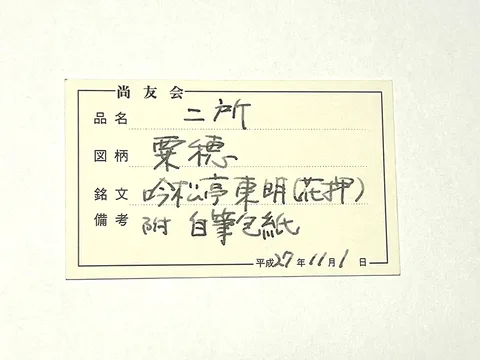 尚友会
品名 二所
図柄 粟穂
銘文 吟松亭東明(花押)
備考 附 自筆包紙
平成27年11月1日